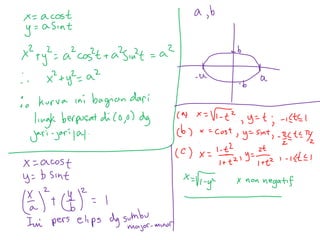 x = a cos t
y = a sin t
x² + y² = a² cos² t + a² sin² t = a²
∴ x² + y² = a²
∴ kurva ini bagian dari
lingk berpusat di (0,0) dg
jari-jari |a|.
x = a cos t
y = b sin t
(x/a)² + (y/b)² = 1
Ini pers elips dg sumbu
mayor-minor
a, b
b
-a
a
-b
(a) x = √1-t², y = t; -1≤t≤1
(b) x = cos t, y = sin t, -π/2 ≤ t ≤ π/2
(c) x = 1-t²/1+t², y = 2t/1+t², -1≤t≤1
x = √1-y² x non negatif